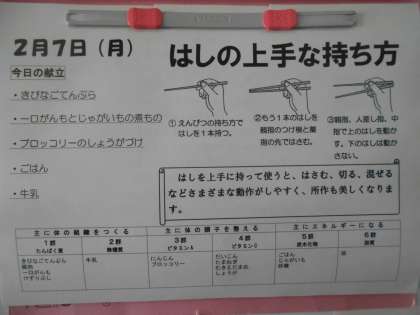 2月7日（月）
はしの上手な持ち方
今日の献立
・きびなごてんぷら
・一口がんもとじゃがいもの煮もの
・ブロッコリーのしょうがづけ
・ごはん
・牛乳
①えんぴつの持ち方で
はしを1本持つ。
②もう1本のはしを
親指のつけ根と薬
指の先ではさむ。
③親指、人差し指、中
指で上のはしを動か
す。下のはしは動か
さない。
はしを上手に持って使うと、はさむ、切る、混ぜる
などさまざまな動作がしやすく、所作も美しくなりま
す。
主に体の組織をつくる
主に体の調子を整える
主にエネルギーになる
1群
たんぱく質
2群
無機質
3群
ビタミンA
4群
ビタミンC
5群
炭水化物
6群
脂質
きびなごてんぷら
鶏肉
一口がんも
けずりぶし
牛乳
にんじん
ブロッコリー
だいこん
たまねぎ
むきえだまめ
しょうが
ごはん
じゃがいも
砂糖
油